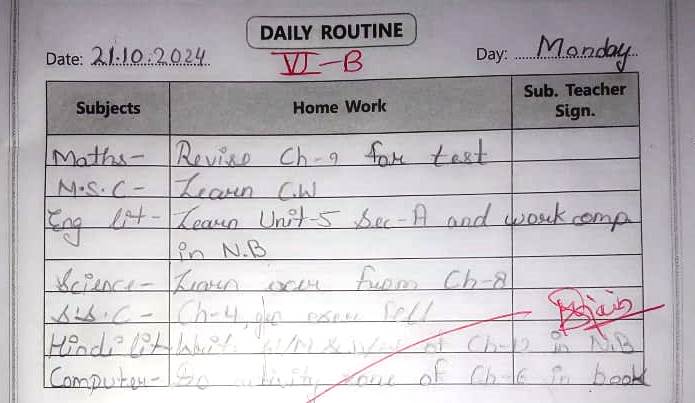 DAILY ROUTINE
Date: 21.10.2024 VI-B Day: Monday
Subjects Home Work Sub. Teacher Sign.
Maths- Revise Ch-9 for test
M.S.C- Learn C.W
Eng lit- Learn Unit-5 Sec-A and work comp
in N.B
Science- Learn from Ch-8
S.S.C- Ch-4,
Hindi lit- of Ch-12 in N.B
Computer- activity zone of Ch-6 in book